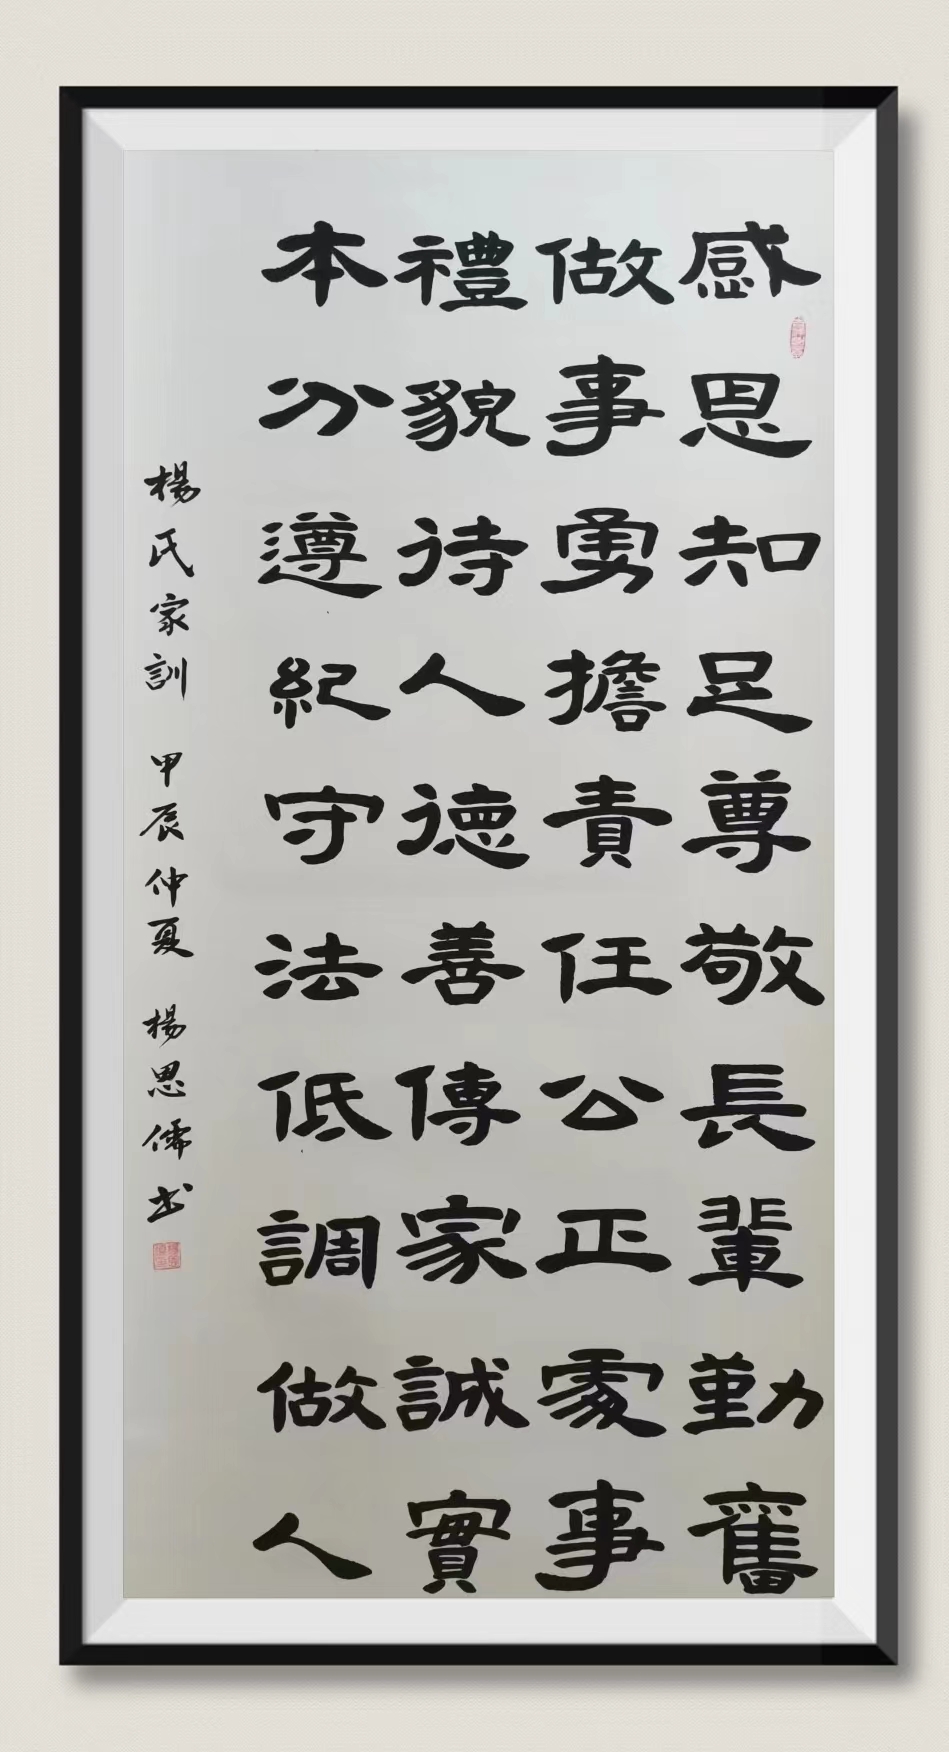 感恩知足尊敬長輩勤奮
做事勇擔責任公正處事
禮貌待人德善傳家誠實
本分遵紀守法低調做人
楊氏家訓 甲辰仲夏 楊思儒书